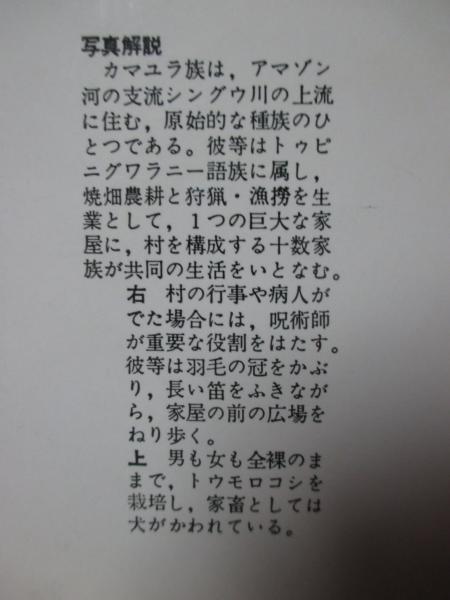 写真解説
カマユラ族は，アマゾン
河の支流シングウ川の上流
に住む，原始的な種族のひ
とつである。彼等はトゥピ
ニグワラニー語族に属し，
焼畑農耕と狩猟・漁撈を生
業として，１つの巨大な家
屋に，村を構成する十数家
族が共同の生活をいとなむ。
右　村の行事や病人が
でた場合には，呪術師
が重要な役割をはたす。
彼等は羽毛の冠をかぶ
り，長い笛をふきなが
ら，家屋の前の広場を
ねり歩く。
上　男も女も全裸のま
まで，トウモロコシを
栽培し，家畜としては
犬がかわれている。